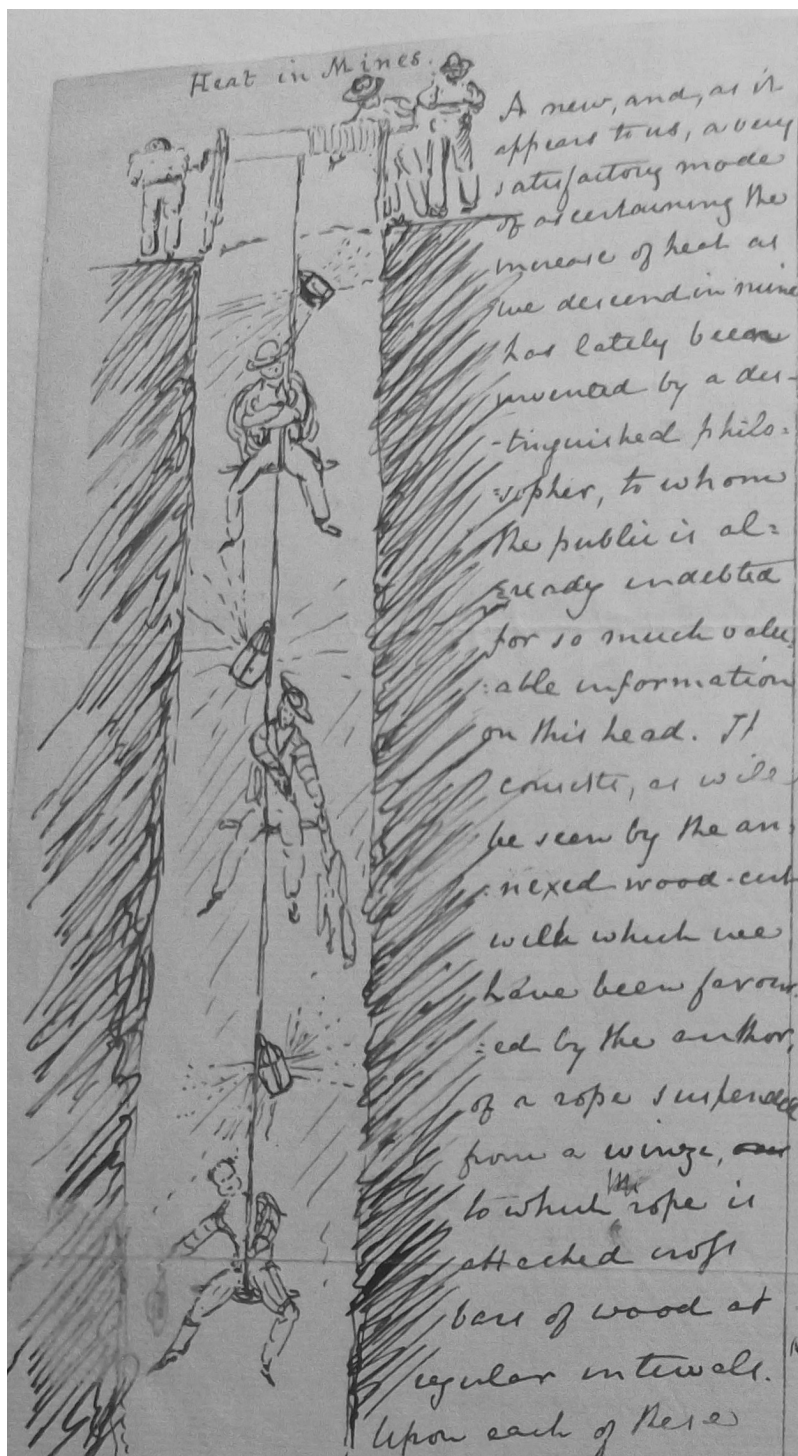 Heat in Mines.
A new, and, as it
appears to us, a very
satisfactory mode
of ascertaining the
increase of heat as
we descend in mine
has lately been
invented by a dis-
-tinguished philo=
=sopher, to whom
the public is al=
=ready indebted
for so much valu=
=able information
on this head. It
consists, as will
be seen by the an=
=nexed wood-cut
with which we
have been favour=
=ed by the author,
of a rope suspended
from a winze,
to which the rope is
attached cross
bars of wood at
regular intervals.
Upon each of these